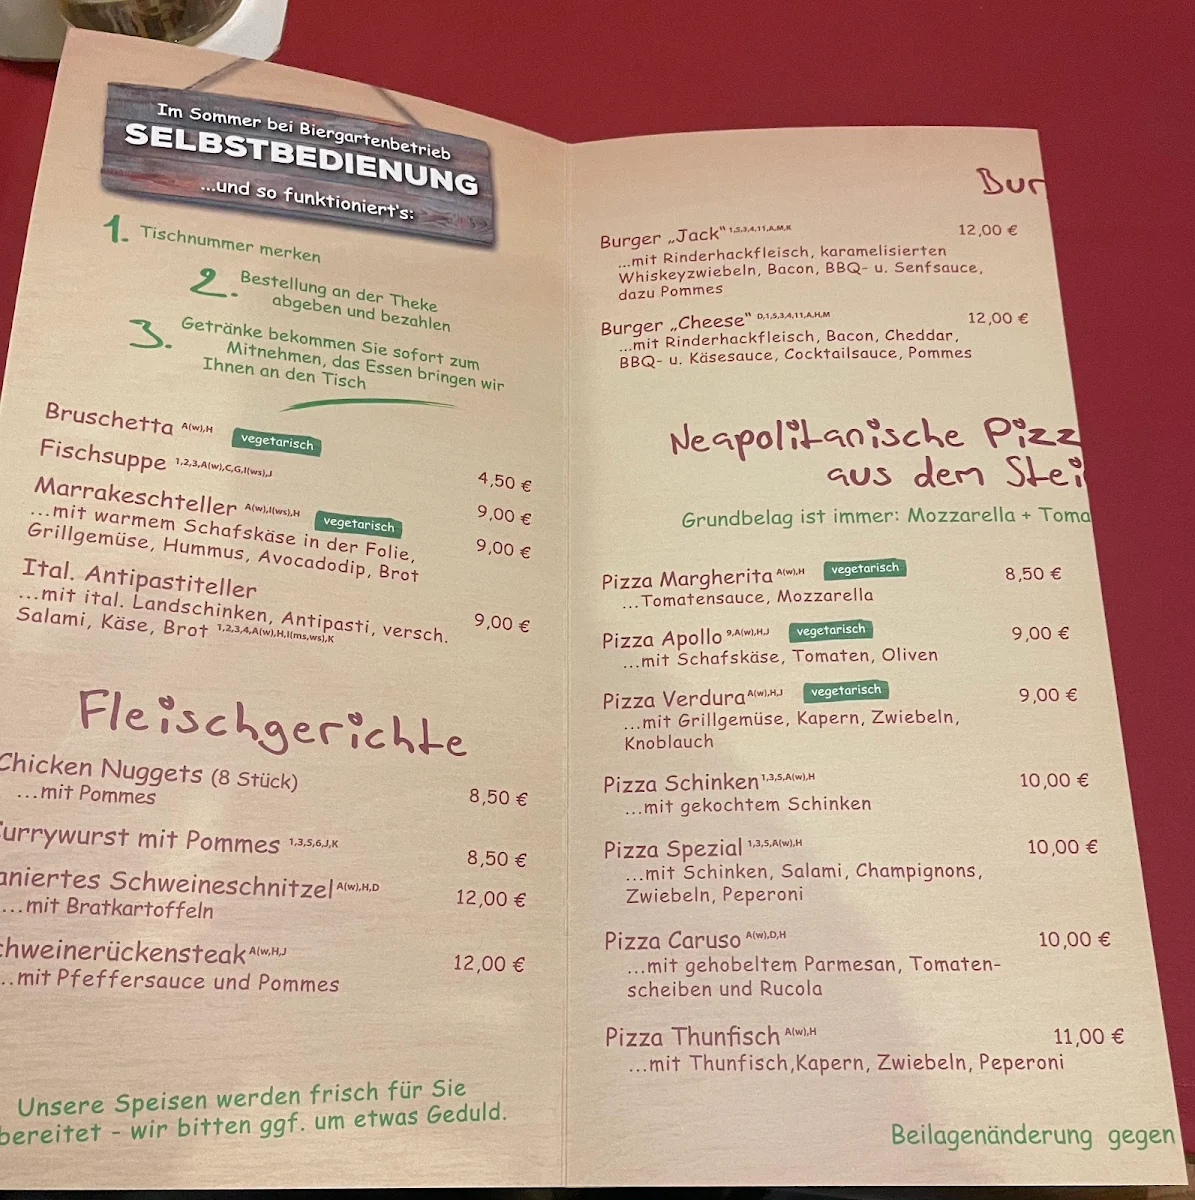 Im Sommer bei Biergartenbetrieb
SELBSTBEDIENUNG
...und so funktioniert's:
1. Tischnummer merken
2. Bestellung an der Theke
abgeben und bezahlen
3. Getränke bekommen Sie sofort zum
Mitnehmen, das Essen bringen wir
Ihnen an den Tisch
Bruschetta A(w),H vegetarisch 4,50 €
Fischsuppe 1,2,3,A(w),C,G,I(ws),J 9,00 €
Marrakeschteller A(w),I(ws),H vegetarisch 9,00 €
...mit warmem Schafskäse in der Folie,
Grillgemüse, Hummus, Avocadodip, Brot
Ital. Antipastiteller 9,00 €
...mit ital. Landschinken, Antipasti, versch.
Salami, Käse, Brot 1,2,3,4,A(w),H,I(ms,ws),K
Fleischgerichte
Chicken Nuggets (8 Stück) 8,50 €
...mit Pommes
Currywurst mit Pommes 1,3,5,6,J,K 8,50 €
aniertes Schweineschnitzel A(w),H,D 12,00 €
...mit Bratkartoffeln
chweinerückensteak A(w,H,J 12,00 €
...mit Pfeffersauce und Pommes
Unsere Speisen werden frisch für Sie
bereitet - wir bitten ggf. um etwas Geduld.
Bur
Burger „Jack" 1,5,3,4,11,A,M,K 12,00 €
...mit Rinderhackfleisch, karamelisierten
Whiskeyzwiebeln, Bacon, BBQ- u. Senfsauce,
dazu Pommes
Burger „Cheese" D,1,5,3,4,11,A,H,M 12,00 €
...mit Rinderhackfleisch, Bacon, Cheddar,
BBQ- u. Käsesauce, Cocktailsauce, Pommes
Neapolitanische Pizz
aus dem Stei
Grundbelag ist immer: Mozzarella + Toma
Pizza Margherita A(w),H vegetarisch 8,50 €
...Tomatensauce, Mozzarella
Pizza Apollo 9,A(w),H,J vegetarisch 9,00 €
...mit Schafskäse, Tomaten, Oliven
Pizza Verdura A(w),H,J vegetarisch 9,00 €
...mit Grillgemüse, Kapern, Zwiebeln,
Knoblauch
Pizza Schinken 1,3,5,A(w),H 10,00 €
...mit gekochtem Schinken
Pizza Spezial 1,3,5,A(w),H 10,00 €
...mit Schinken, Salami, Champignons,
Zwiebeln, Peperoni
Pizza Caruso A(w),D,H 10,00 €
...mit gehobeltem Parmesan, Tomaten-
scheiben und Rucola
Pizza Thunfisch A(w),H 11,00 €
...mit Thunfisch,Kapern, Zwiebeln, Peperoni
Beilagenänderung gegen